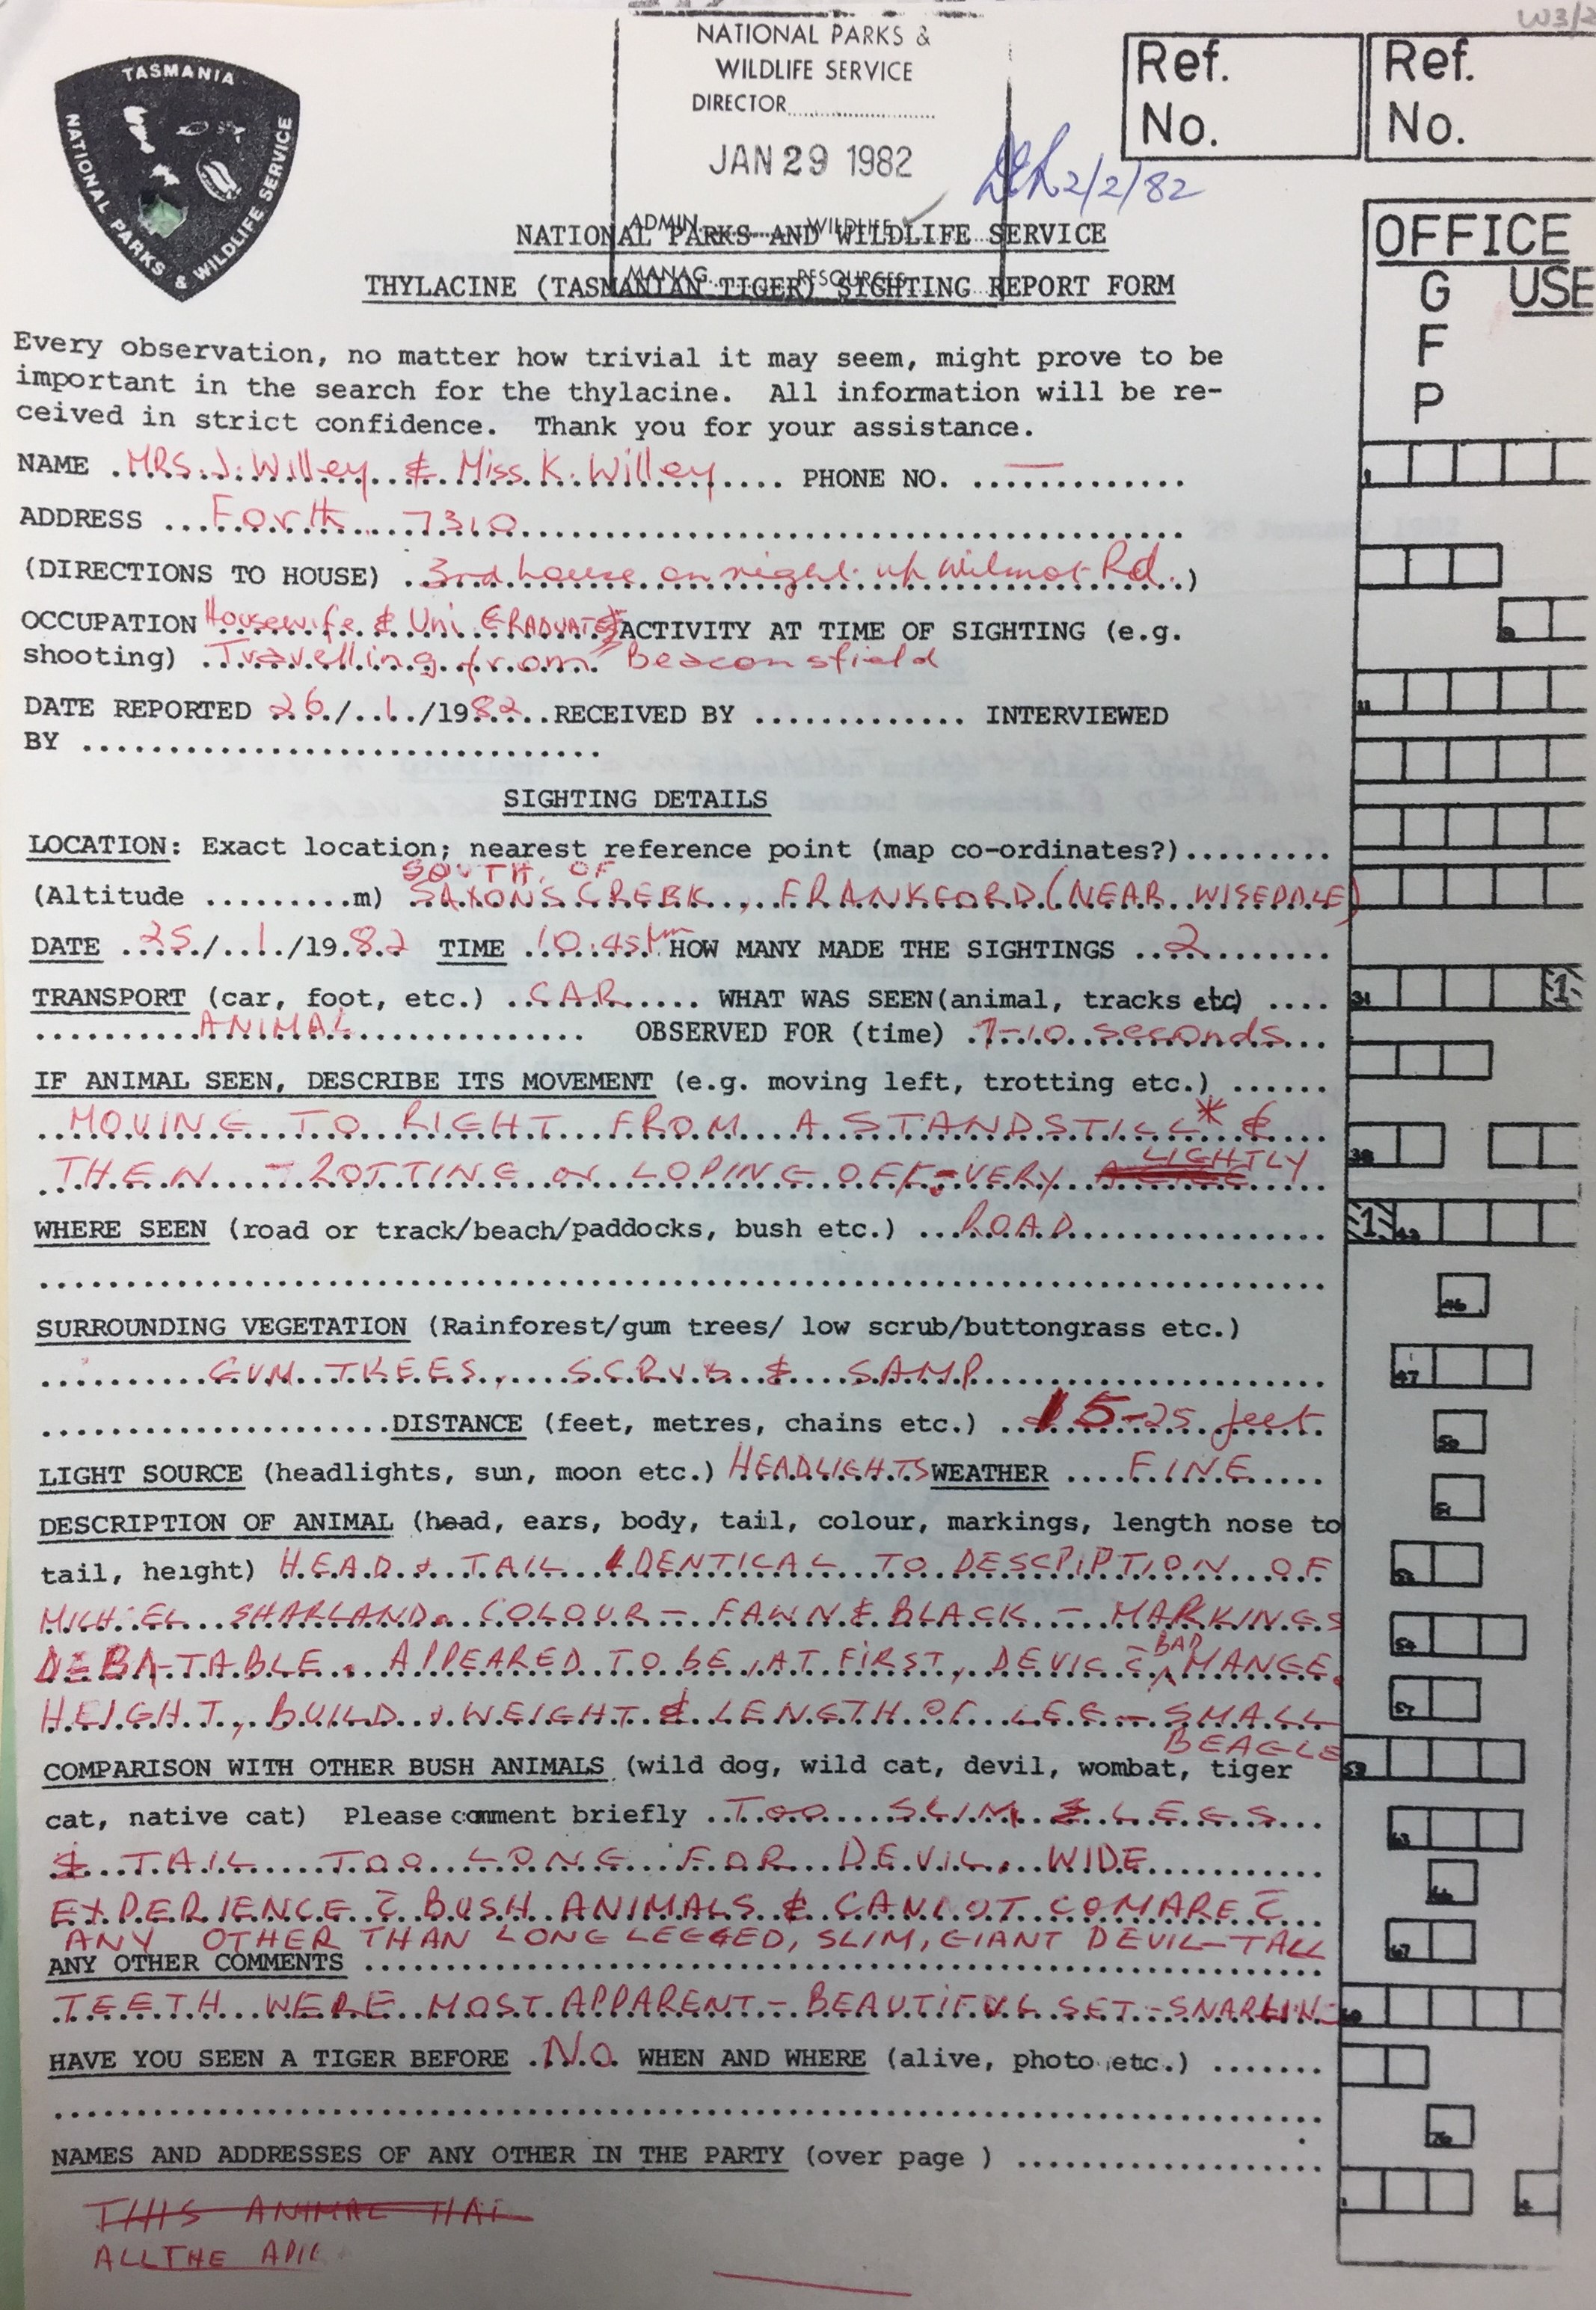 W3/2
TASMANIA
NATIONAL PARKS & WILDLIFE SERVICE
NATIONAL PARKS &
WILDLIFE SERVICE
DIRECTOR....................
JAN 29 1982
2/2/82
ADMIN.......... WILDLIFE
MANAG........ RESOURCES
Ref. No.
Ref. No.
OFFICE USE
G
F
P
NATIONAL PARKS AND WILDLIFE SERVICE
THYLACINE (TASMANIAN TIGER) SIGHTING REPORT FORM
Every observation, no matter how trivial it may seem, might prove to be
important in the search for the thylacine. All information will be re-
ceived in strict confidence. Thank you for your assistance.
NAME MRS. J. Willey & Miss K. Willey PHONE NO. —
ADDRESS Forth 7310
(DIRECTIONS TO HOUSE) 3rd house on right up Wilmot Rd.)
OCCUPATION Housewife & Uni GRADUATE ACTIVITY AT TIME OF SIGHTING (e.g.
shooting) Travelling from Beaconsfield
DATE REPORTED 26/1/1982 RECEIVED BY ............. INTERVIEWED
BY ..............................
SIGHTING DETAILS
LOCATION: Exact location; nearest reference point (map co-ordinates?)..........
SOUTH OF
(Altitude .........m) SAXONS CREEK, FRANKFORD (NEAR WISEDALE)
DATE 25/1/1982 TIME 10.45pm HOW MANY MADE THE SIGHTINGS 2
TRANSPORT (car, foot, etc.) CAR WHAT WAS SEEN(animal, tracks etc) ....
ANIMAL OBSERVED FOR (time) 7-10 seconds
IF ANIMAL SEEN, DESCRIBE ITS MOVEMENT (e.g. moving left, trotting etc.) ......
MOVING TO RIGHT FROM A STANDSTILL* &
THEN TROTTING or LOPING OFF - VERY LIGHTLY
WHERE SEEN (road or track/beach/paddocks, bush etc.) ROAD
SURROUNDING VEGETATION (Rainforest/gum trees/ low scrub/buttongrass etc.)
GUM TREES, SCRUB & SAMP
DISTANCE (feet, metres, chains etc.) 15-25 feet
LIGHT SOURCE (headlights, sun, moon etc.) HEADLIGHTS WEATHER FINE
DESCRIPTION OF ANIMAL (head, ears, body, tail, colour, markings, length nose to
tail, height) HEAD & TAIL IDENTICAL TO DESCRIPTION OF
MICHAEL SHARLAND. COLOUR - FAWN & BLACK - MARKINGS
DEBATABLE. APPEARED TO BE, AT FIRST, DEVIL c̄ BAD MANGE.
HEIGHT, BUILD & WEIGHT & LENGTH OF LEG - SMALL
BEAGLE
COMPARISON WITH OTHER BUSH ANIMALS (wild dog, wild cat, devil, wombat, tiger
cat, native cat) Please comment briefly TOO SLIM & LEGS
& TAIL TOO LONG FOR DEVIL. WIDE
EXPERIENCE c̄ BUSH ANIMALS & CANNOT COMARE c̄
ANY OTHER THAN LONG LEGGED, SLIM, GIANT DEVIL-TALL
ANY OTHER COMMENTS
TEETH WERE MOST APPARENT - BEAUTIFUL SET - SNARLING
HAVE YOU SEEN A TIGER BEFORE No. WHEN AND WHERE (alive, photo etc.) .......
NAMES AND ADDRESSES OF ANY OTHER IN THE PARTY (over page ) ..................
THIS ANIMAL HAD
ALL THE